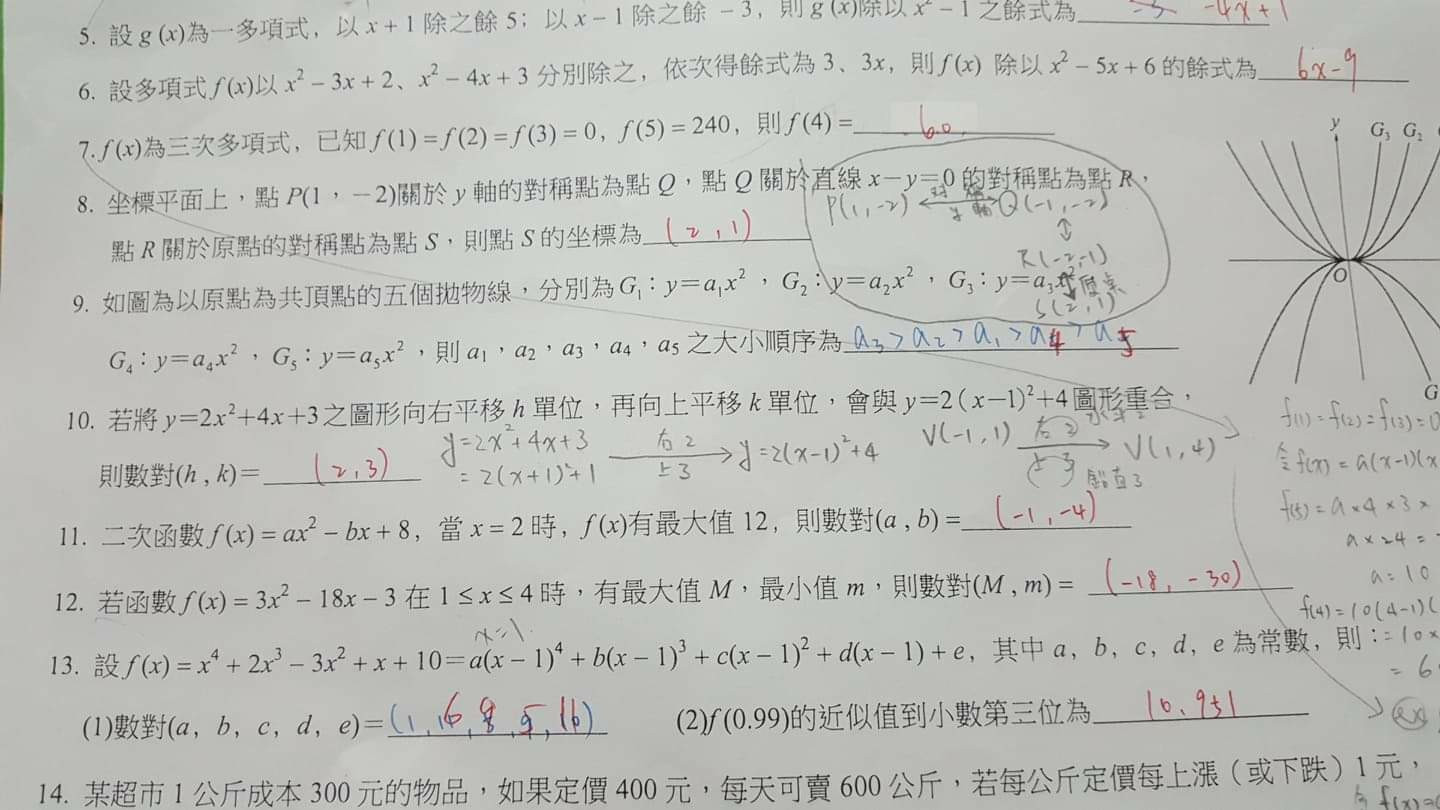 5. 設 g (x)為一多項式，以 x + 1 除之餘 5；以 x − 1 除之餘 − 3，則 g (x)除以 x² − 1 之餘式為 -4x+1
6. 設多項式 f (x)以 x² − 3x + 2、x² − 4x + 3 分別除之，依次得餘式為 3、3x，則 f (x) 除以 x² − 5x + 6 的餘式為 6x-9
7. f (x)為三次多項式，已知 f (1) = f (2) = f (3) = 0，f (5) = 240，則 f (4) = 60
8. 坐標平面上，點 P(1，−2)關於 y 軸的對稱點為點 Q，點 Q 關於直線 x−y=0 的對稱點為點 R，
P(1,-2) 對稱 y軸 Q(-1,-2)
點 R 關於原點的對稱點為點 S，則點 S 的坐標為 (2,1)
R(-2,-1)
原点
S(2,1)
9. 如圖為以原點為共頂點的五個拋物線，分別為 G₁：y=a₁x²，G₂：y=a₂x²，G₃：y=a₃x²
G₄：y=a₄x²，G₅：y=a₅x²，則 a₁，a₂，a₃，a₄，a₅ 之大小順序為 a₃>a₂>a₁>a₄>a₅
y G₃ G₂
O
G
10. 若將 y=2x²+4x+3 之圖形向右平移 h 單位，再向上平移 k 單位，會與 y=2 (x−1)²+4 圖形重合，
則數對(h , k)= (2,3)
y=2x²+4x+3
=2(x+1)²+1
右2
上3
y=2(x-1)²+4
V(-1,1) 右2 上3 V(1,4)
水平2
鉛直3
f(1)=f(2)=f(3)=0
令f(x)=a(x-1)(x
f(5)=a×4×3×
a×24=
a=10
f(4)=10(4-1)(
=10×
=6
11. 二次函數 f (x) = ax² − bx + 8，當 x = 2 時，f (x)有最大值 12，則數對(a , b) = (-1,-4)
12. 若函數 f (x) = 3x² − 18x − 3 在 1 ≤ x ≤ 4 時，有最大值 M，最小值 m，則數對(M , m) = (-18,-30)
x=1
13. 設 f (x) = x⁴ + 2x³ − 3x² + x + 10 = a(x − 1)⁴ + b(x − 1)³ + c(x − 1)² + d(x − 1) + e，其中 a，b，c，d，e 為常數，則：
(1)數對(a，b，c，d，e) =
(2)f (0.99)的近似值到小數第三位為 10.951
14. 某超市 1 公斤成本 300 元的物品，如果定價 400 元，每天可賣 600 公斤，若每公斤定價每上漲（或下跌）1 元，